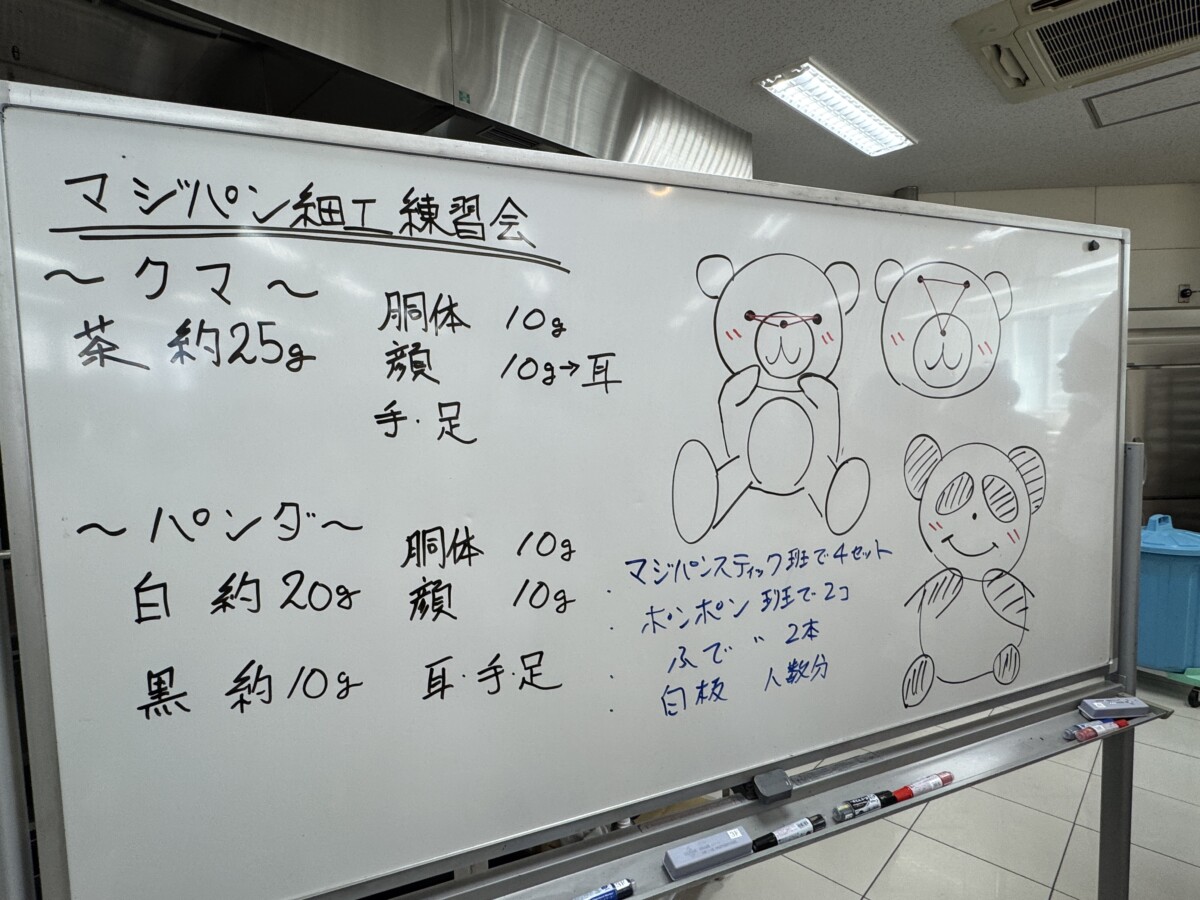 マジパン細工練習会
～クマ～
茶 約25g
胴体 10g
顔 10g→耳
手・足
～パンダ～
白 約20g
胴体 10g
顔 10g
黒 約10g 耳・手・足
マジパンスティック班で4セット
・ポンポン 班で2コ
・ふで 〃 2本
・白板 人数分